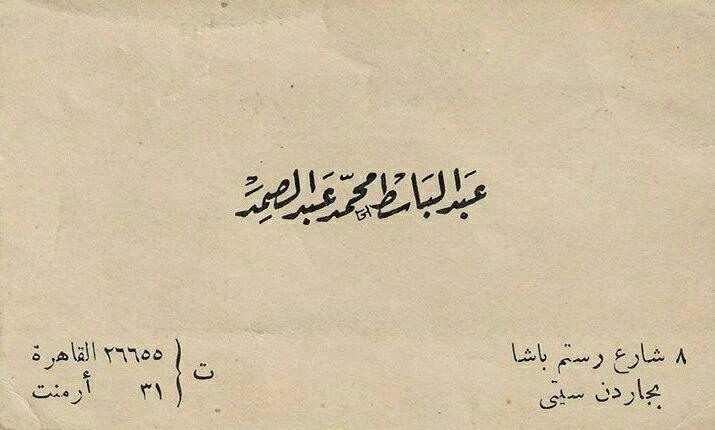 عَبد البَاسِط محمّد عَبد الصمِدْ
٨ شارع رستم باشا
بجاردن سيتى
ت { ٢٦٦٥٥ القاهرة
٣١ أرمنت